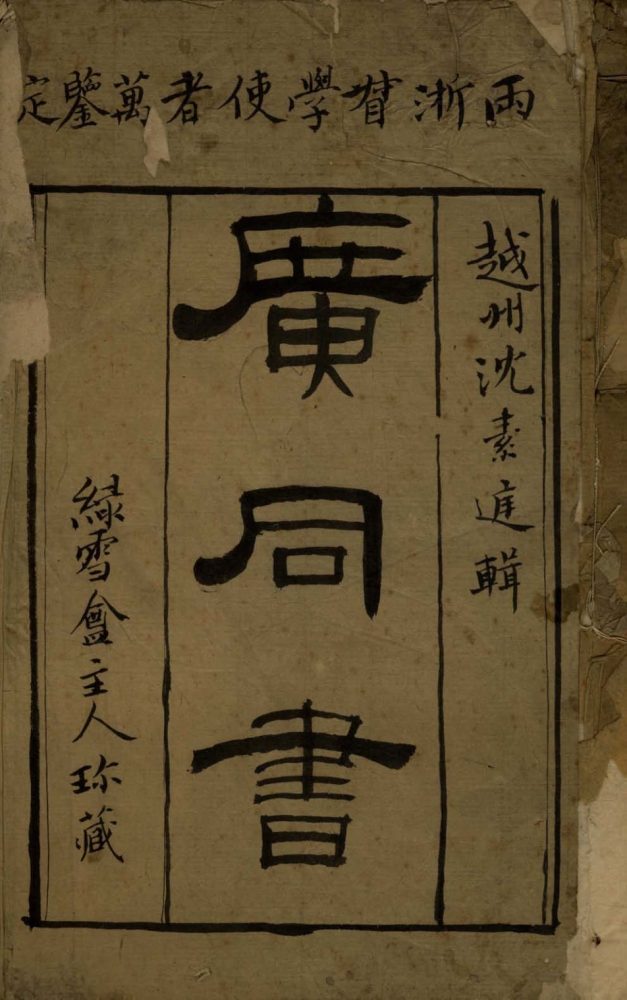 兩浙督學使者萬鑒定
越州沈素庭輯
廣同書
綠雪盦主人珎藏